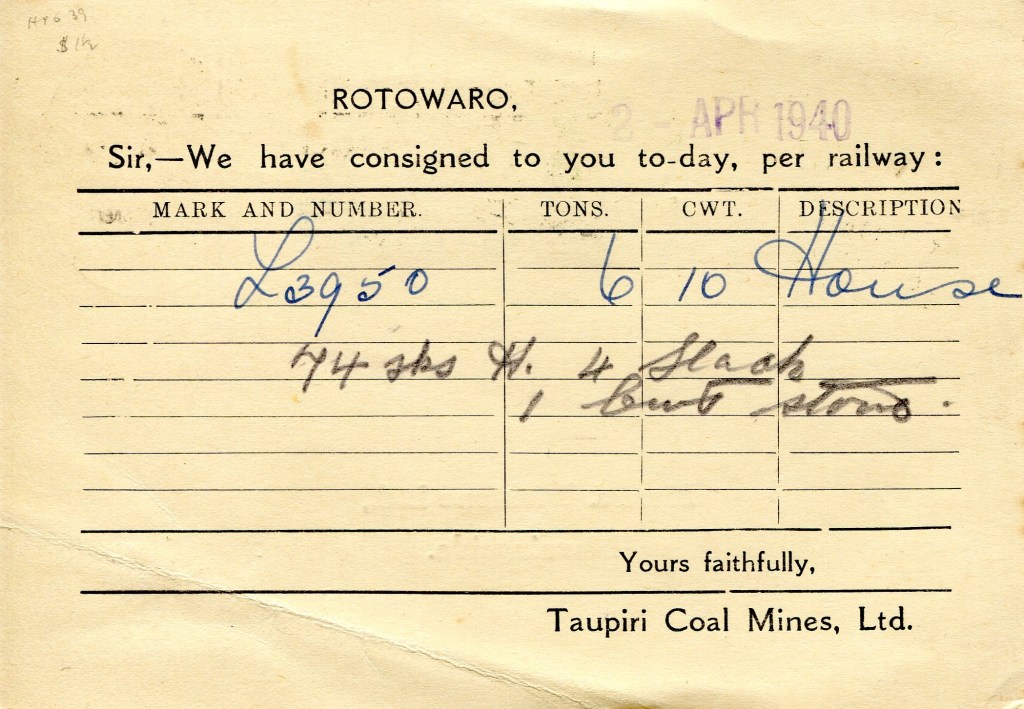 $1½
ROTOWARO,
2 - APR 1940
Sir,—We have consigned to you to-day, per railway:
MARK AND NUMBER. TONS. CWT. DESCRIPTION
L3950 6 10 House
74 sks H. 4 Slack
1 Cwt stone.
Yours faithfully,
Taupiri Coal Mines, Ltd.